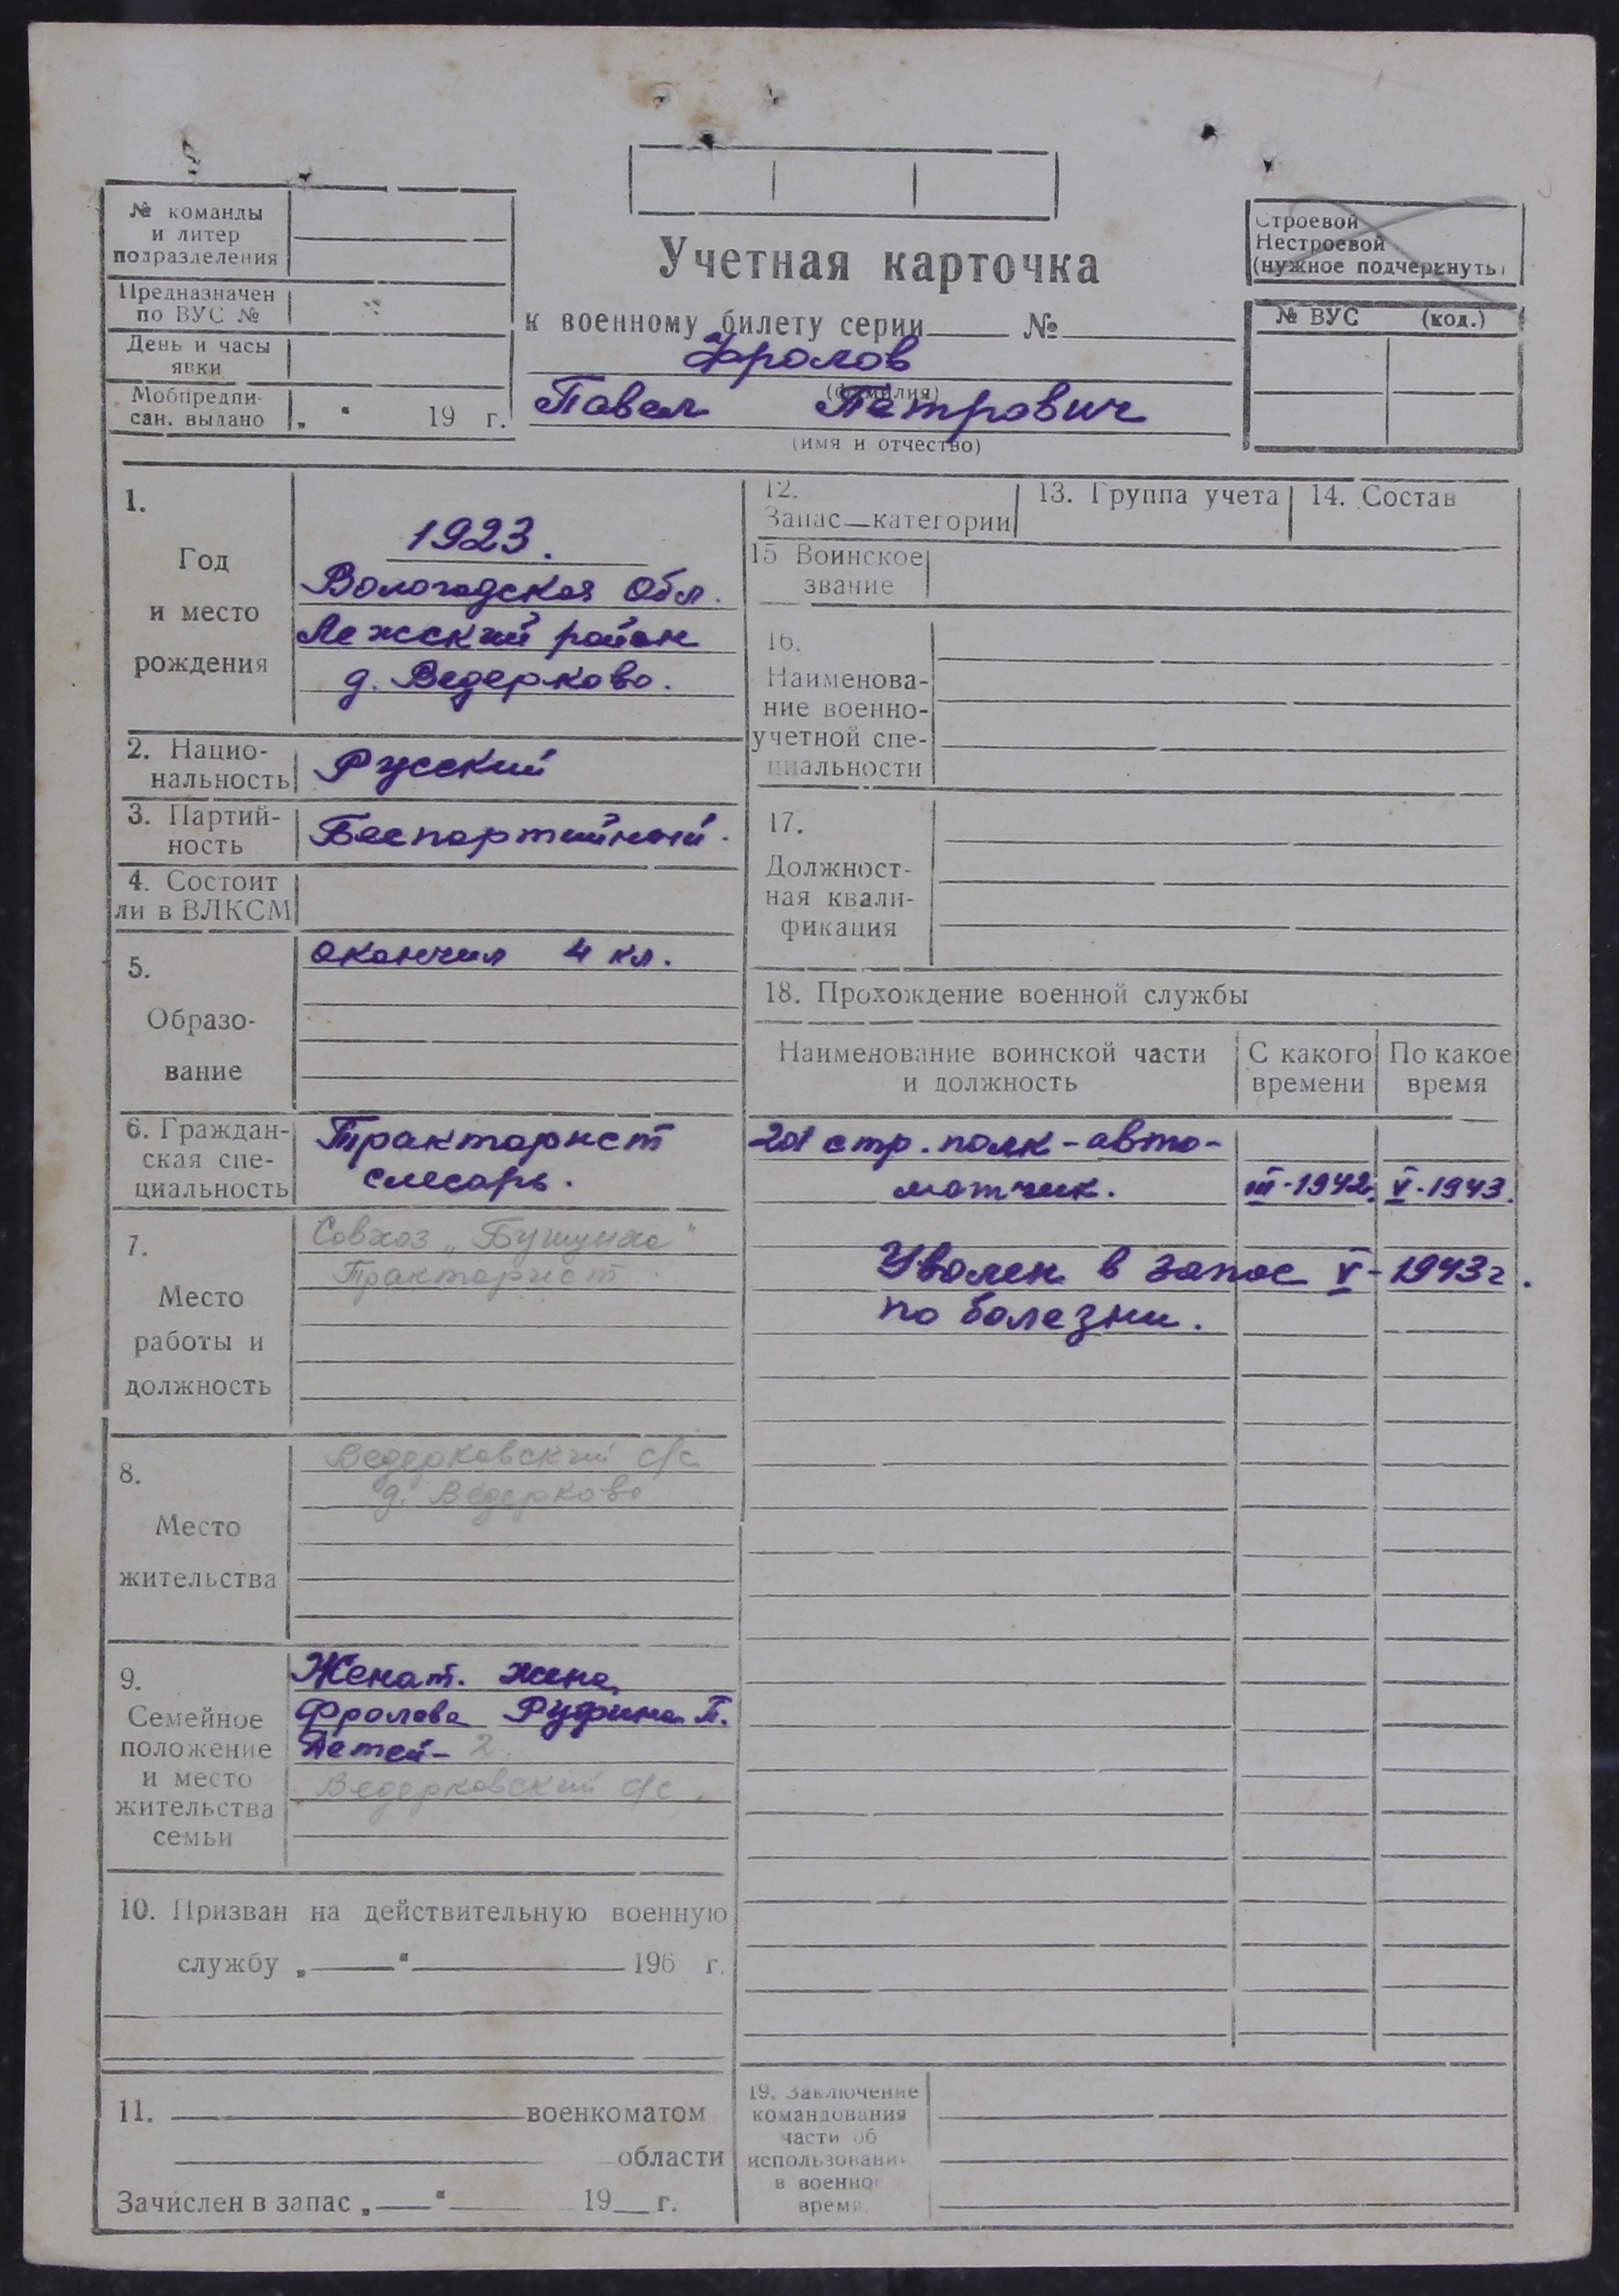 № команды
и литер
подразделения
Предназначен
по ВУС №
День и часы
явки
Мобпредпи-
сан. выдано „ " 19 г.
Учетная карточка
к военному билету серии № 
Фролов
(фамилия)
Павел Петрович
(имя и отчество)
Строевой
Нестроевой
(нужное подчеркнуть)
№ ВУС (код.)
1.
Год
и место
рождения
1923.
Вологодская Обл.
Лежский район
д. Ведерково.
2. Нацио-
нальность
Русский
3. Партий-
ность
Беспартийный.
4. Состоит
ли в ВЛКСМ
5.
Образо-
вание
окончил 4 кл.
6. Граждан-
ская спе-
циальность
Тракторист
слесарь.
7.
Место
работы и
должность
Совхоз „Бушуиха"
Тракторист.
8.
Место
жительства
Ведерковский с/с
д. Ведерково
9.
Семейное
положение
и место
жительства
семьи
Женат. жена
Фролова Руфина П.
Детей - 2.
Ведерковский с/с.
10. Призван на действительную военную
службу „ " 196 г.
11. военкоматом
области
Зачислен в запас „ " 19 г.
12.
Запас — категории
13. Группа учета
14. Состав
15 Воинское
звание
16.
Наименова-
ние военно-
учетной спе-
циальности
17.
Должност-
ная квали-
фикация
18. Прохождение военной службы
Наименование воинской части
и должность
С какого
времени
По какое
время
201 стр. полк - авто-
матчик. III-1942. V-1943.
Уволен в запас V-1943г.
по болезни.
19. Заключение
командования
части об
использовани
в военно
время